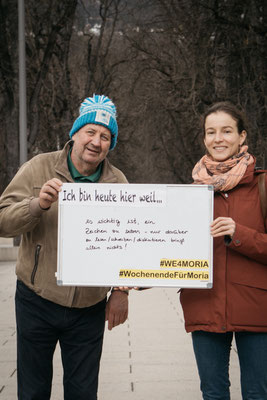 Ich bin heute hier weil...
es wichtig ist, ein
Zeichen zu setzen - nur darüber
zu lesen/schreiben/diskutieren bringt
allein nichts!
#WE4MORIA
#WochenendeFürMoria